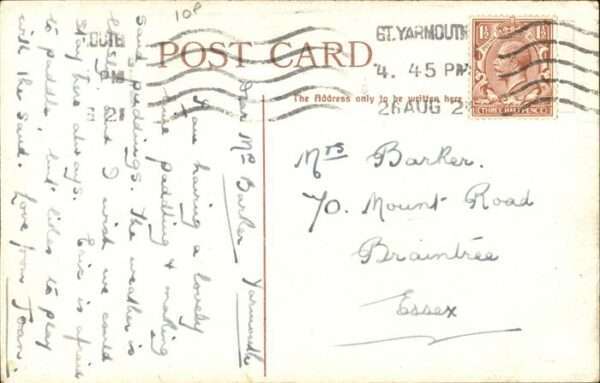 10P
POST CARD.
GT. YARMOUTH
4. 45 PM
26 AUG 2
The Address only to be written here
THREE HALFPENCE
Mrs Barker.
70. Mount Road
Braintree
Essex
Yarmouth
Dear Mrs Barker
I am having a lovely
time paddling & making
sand puddings. The weather is
and I wish we could
stay here always. Eric is afraid
to paddle, but likes to play
with the sand. Love from Joan.